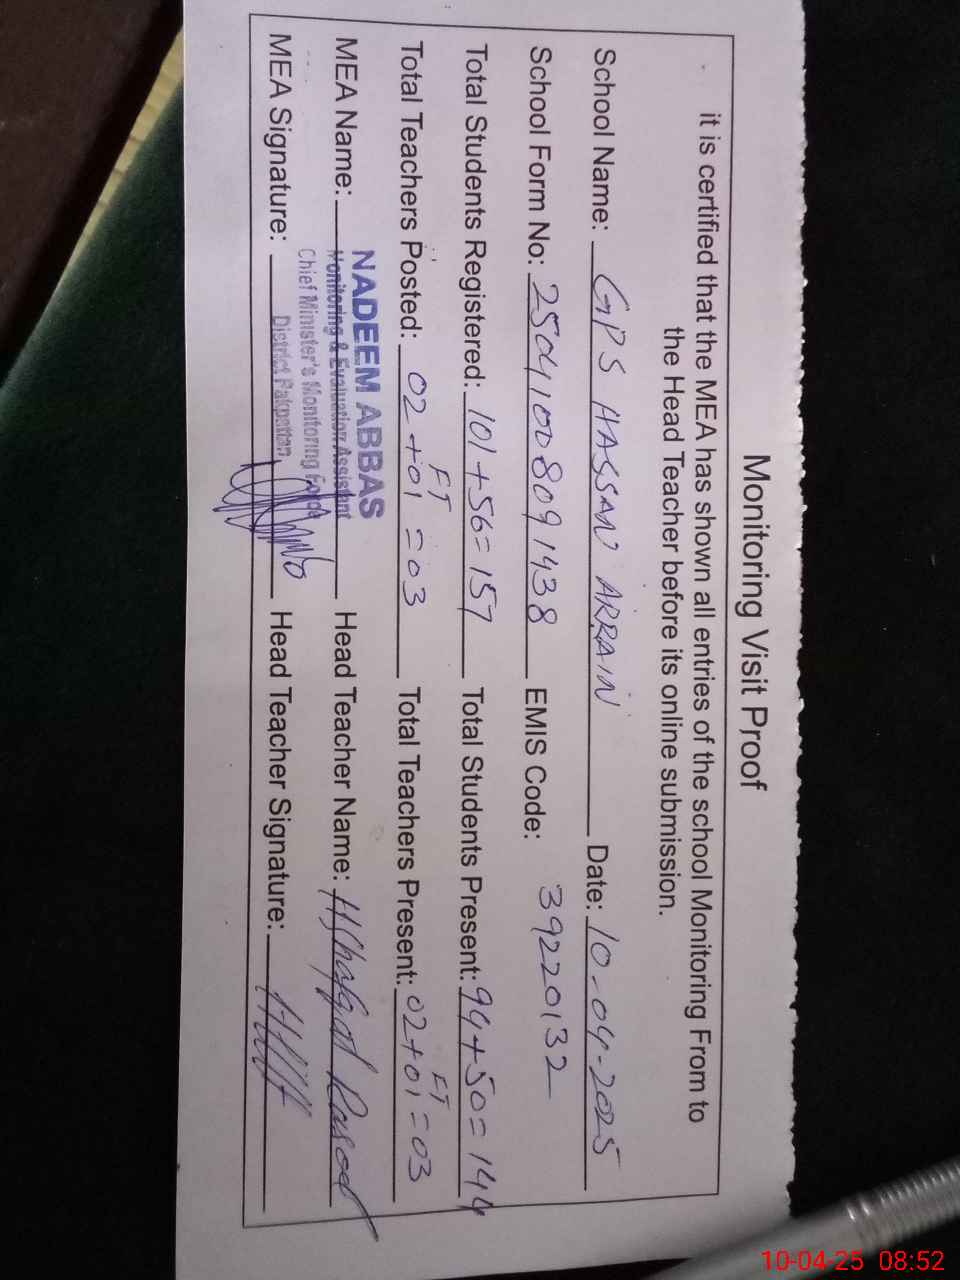 Monitoring Visit Proof
it is certified that the MEA has shown all entries of the school Monitoring From to
the Head Teacher before its online submission.
School Name: GPS HASSAN ARRAIN Date: 10-04-2025
School Form No: 25041008091438 EMIS Code: 39220132
Total Students Registered: 101+56=157 Total Students Present: 94+50=144
Total Teachers Posted: 02+01 FT=03 Total Teachers Present: 02+01 FT=03
MEA Name: Head Teacher Name: Rasool
NADEEM ABBAS
Monitoring & Evaluation Assistant
Chief Minister's Monitoring Force
District Pakpattan
MEA Signature: Head Teacher Signature:
10-04-25 08:52